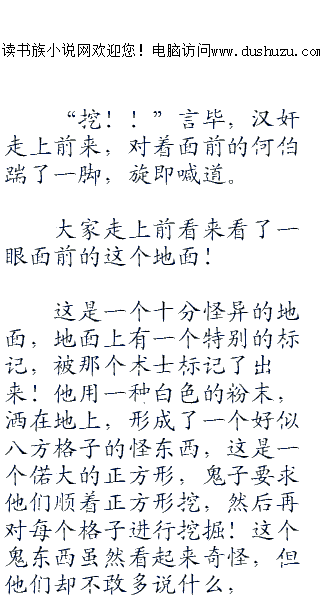 读书族小说网欢迎您！电脑访问www.dushuzu.com
“挖！！”言毕，汉奸
走上前来，对着面前的何伯
踹了一脚，旋即喊道。
大家走上前看来看了一
眼面前的这个地面！
这是一个十分怪异的地
面，地面上有一个特别的标
记，被那个术士标记了出
来！他用一种白色的粉末，
洒在地上，形成了一个好似
八方格子的怪东西，这是一
个偌大的正方形，鬼子要求
他们顺着正方形挖，然后再
对每个格子进行挖掘！这个
鬼东西虽然看起来奇怪，但
他们却不敢多说什么，